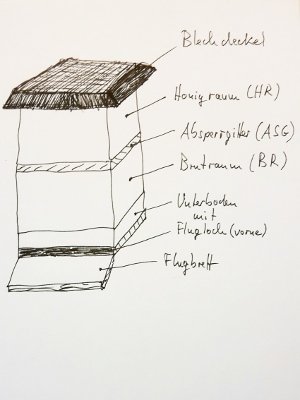 Blechdeckel
Honigraum (HR)
Absperrgitter (ASG)
Brutraum (BR)
Unterboden
mit
Flugloch (vorne)
Flugbrett